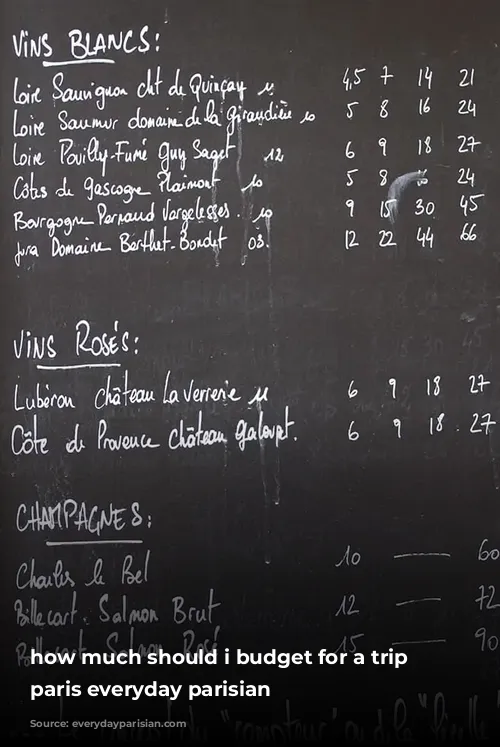 VINS BLANCS:
Loire Sauvignon cht de Quinçay 11 4,5 7 14 21
Loire Saumur domaine de la giraudière 10 5 8 16 24
Loire Pouilly-Fumé Guy Saget 12 6 9 18 27
Côtes de gascogne Plaimont 10 5 8 16 24
Bourgogne Pernand Vergelesses. 10 9 15 30 45
Jura Domaine Berthet-Bondet 03. 12 22 44 66
VINS ROSÉS:
Lubéron château La Verrerie 11 6 9 18 27
Côte de Provence château galoupet. 6 9 18. 27
CHAMPAGNES:
Charles le Bel 10 — 60
Billecart. Salmon Brut 12 — 72
Billecart Salmon Rosé 15 — 90
how much should i budget for a trip
paris everyday parisian
Source: everydayparisian.com